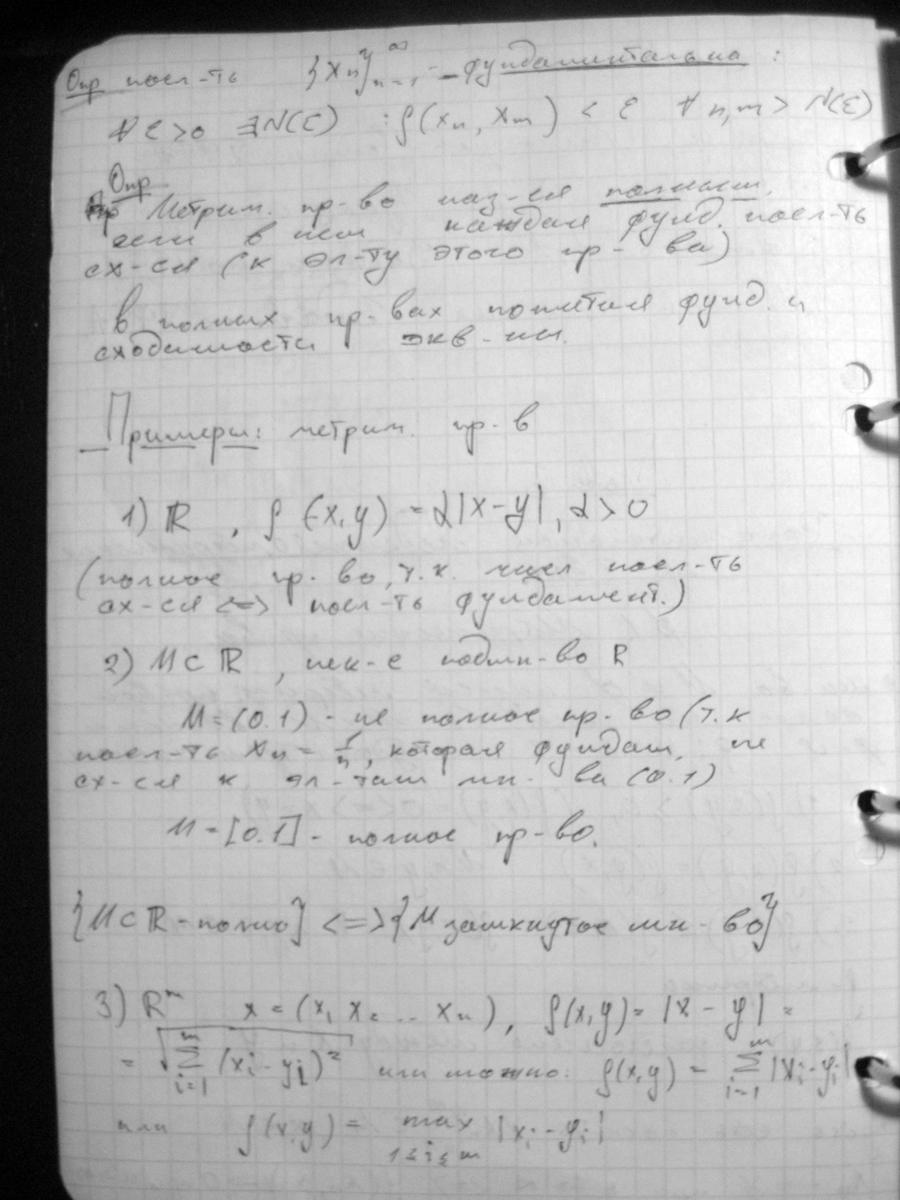 Опр посл-ть {xn}∞n=1 – фундаментальна :
∀ ε>0 ∃N(ε) : ρ(xn, xm) < ε ∀ n,m > N(ε)
Опр
Метрич. пр-во наз-ся полным,
если в нем каждая фунд. посл-ть
сх-ся (к эл-ту этого пр-ва)
В полных пр-вах понятия фунд. и
сходимости экв-ны.
Примеры: метрич. пр-в
1) ℝ , ρ(x,y) = α|x-y|, α>0
(полное пр-во, т.к. числ посл-ть
сх-ся <=> посл-ть фундамент.)
2) M⊂ℝ , нек-е подмн-во ℝ
M=(0.1) - не полное пр-во (т.к
посл-ть xn = 1/n, которая фундам, не
сх-ся к эл-там мн-ва (0.1)
M=[0.1] - полное пр-во.
{M⊂ℝ-полно} <=> {M замкнутое мн-во}
3) ℝm x = (x1 x2 ... xn), ρ(x,y) = |x - y| =
= √∑i=1m (xi - yi)2 или можно: ρ(x,y) = ∑i=1m |xi - yi|
или ρ(x,y) = max 1≤i≤m |xi - yi|